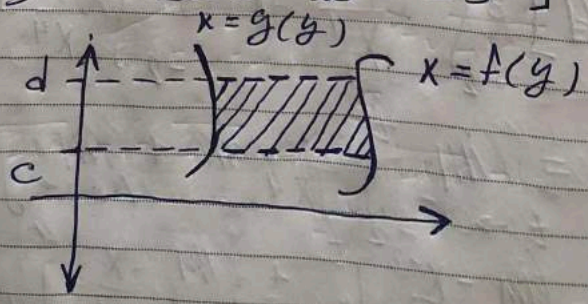 x = g(y)
d
x = f(y)
c